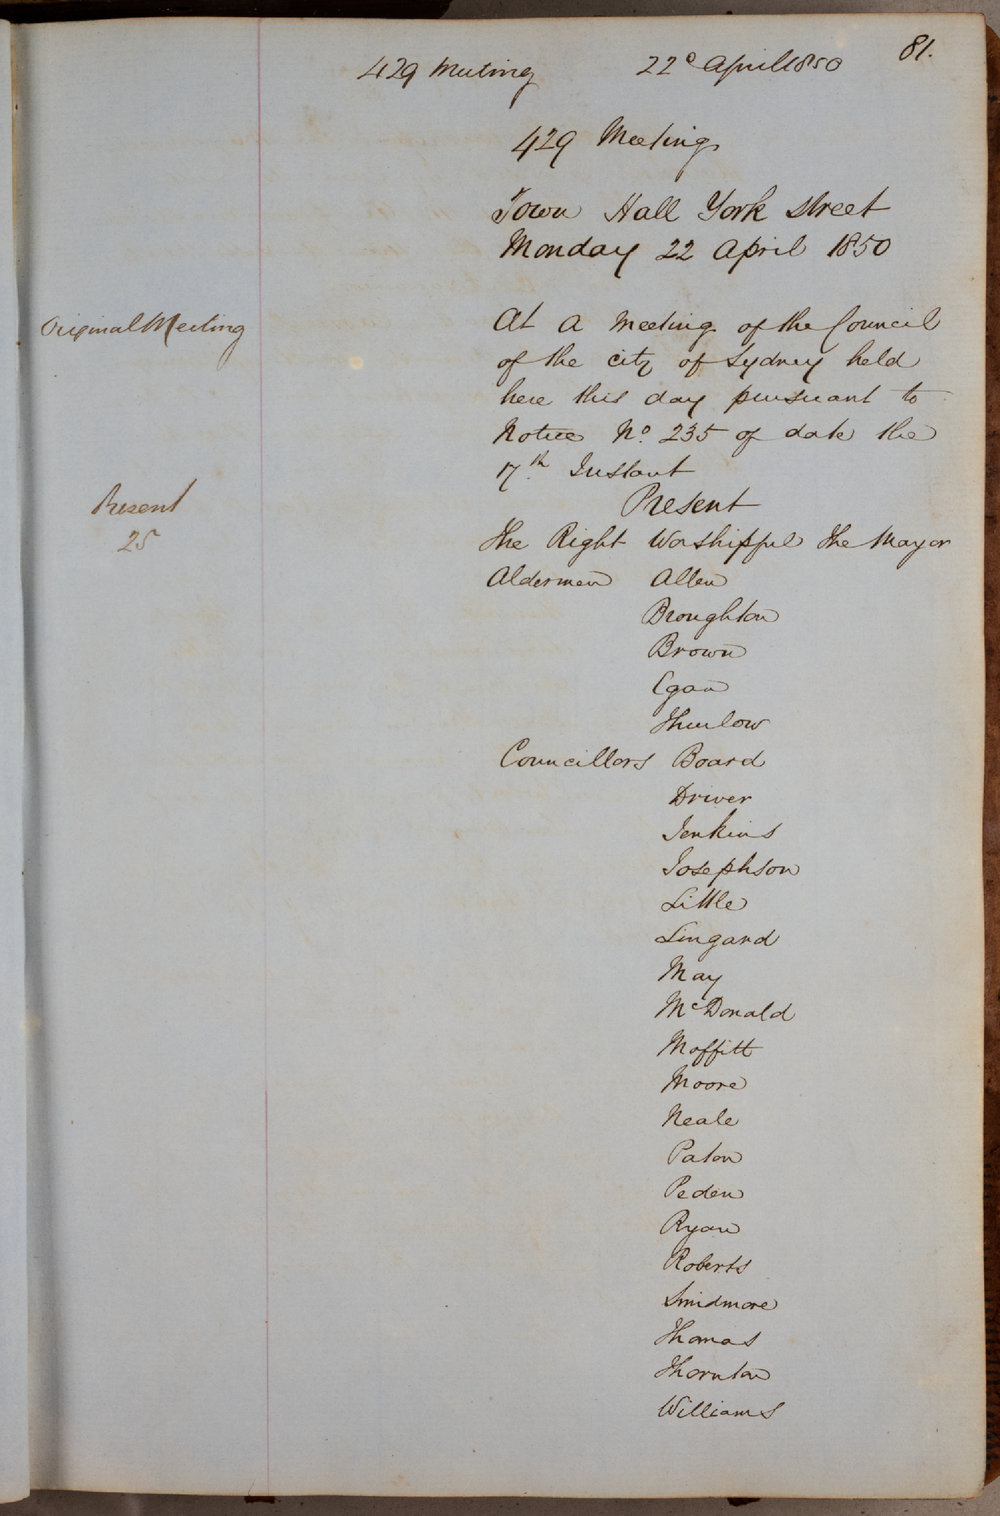 429 Meeting 22d April 1850 81.
429 Meeting
Town Hall York Street
Monday 22 April 1850
Original Meeting
At a Meeting of the Council
of the city of Sydney held
here this day pursuant to
Notice No. 235 of date the
17th Instant
Present
25
Present
The Right Worshipful The Mayor
Aldermen Allen
Broughton
Brown
Egan
Thurlow
Councillors Board
Driver
Jenkins
Josephson
Little
Lingard
May
McDonald
Moffitt
Moore
Neale
Paton
Peden
Ryan
Roberts
Smidmore
Thomas
Thornton
Williams